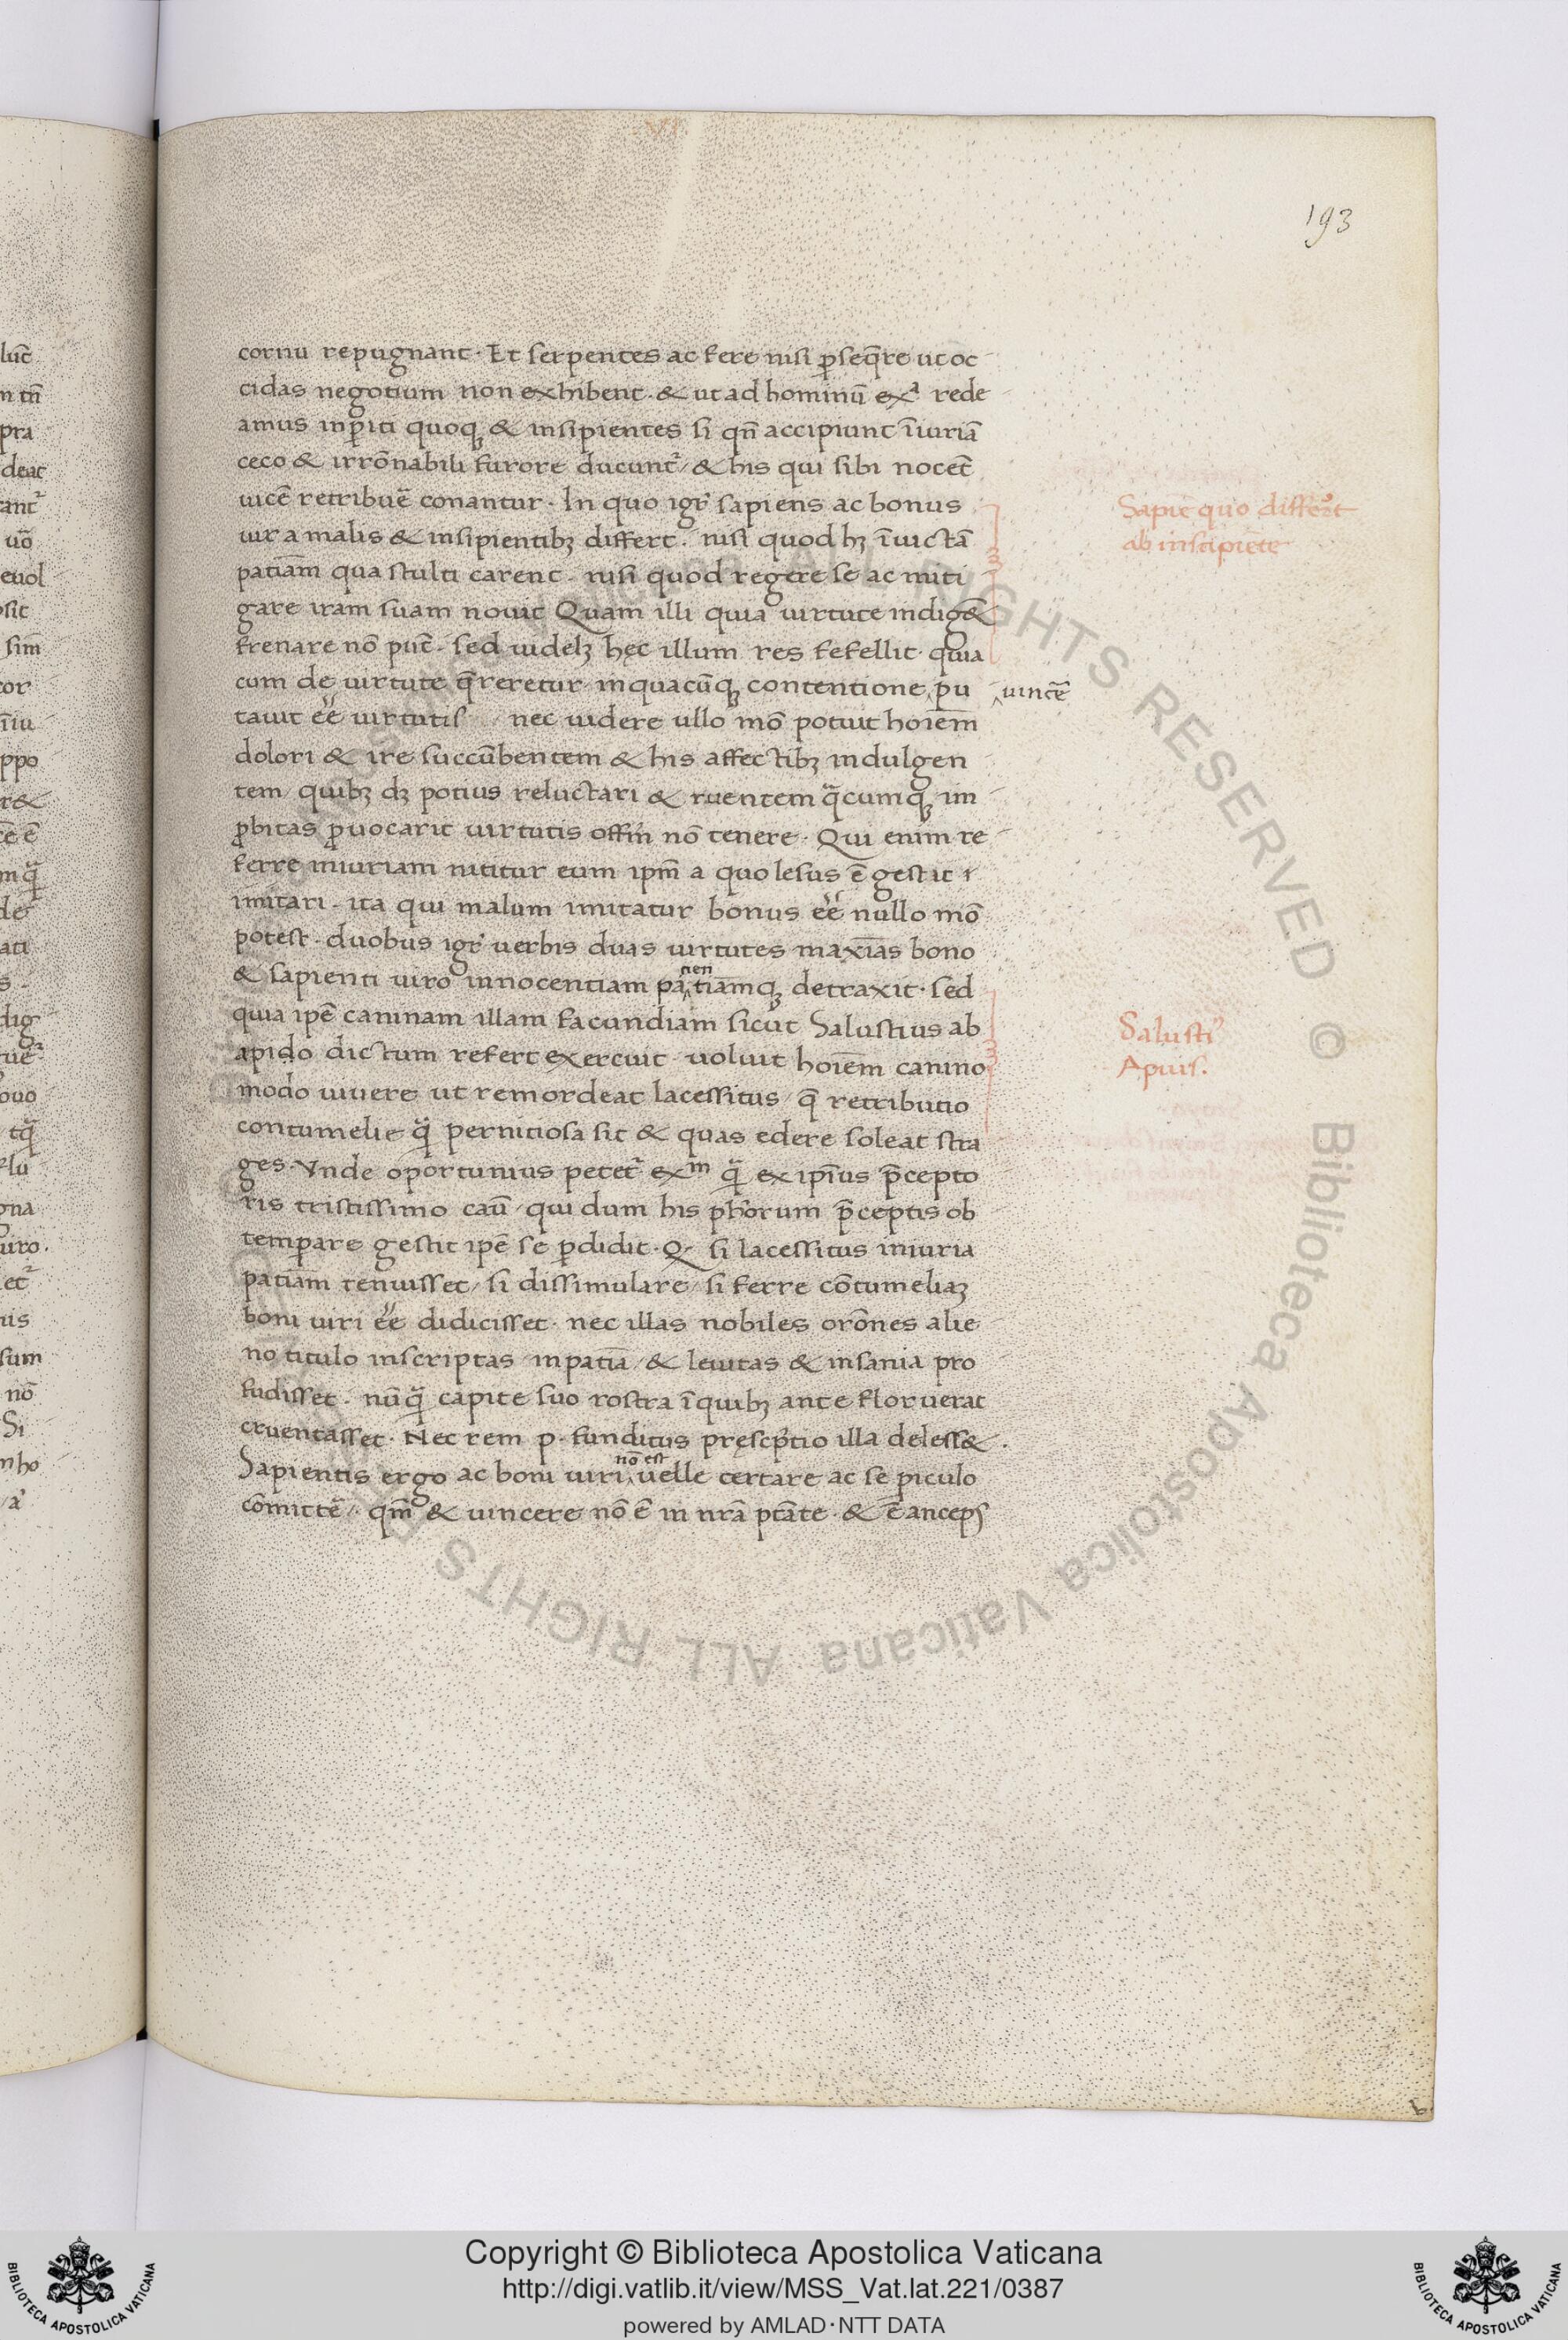 193
cornu repugnant · Et serpentes ac fere nisi ꝑseq̄re ut oc
cidas negotium non exhibent · & ut ad hominū exᵃ rede
amus inꝑiti quoqꝫ & insipientes si qn̄ accipiunt īiuriā
ceco & irrōnabili furore ducunt᷑ / & his qui sibi nocēt
uicē retribuē conantur · In quo igr̄ sapiens ac bonus
uir a malis & insipientibꝫ differt · nisi quod hꝫ īuictā
patiām qua stulti carent · nisi quod regere se ac miti
gare iram suam nouit Quam illi quia uirtute indig&
frenare nō pūt · sed uidelꝫ hęc illum res fefellit · quia
cum de uirtute q̄reretur in quacūqꝫ contentione ‸ pu ‸ uincē
tauit ēē uirtutis nec uidere ullo mō potuit hoiēm
dolori & ire succūbentem & his affectibꝫ indulgen
tem / quibꝫ dꝫ potius reluctari & ruentem q̄cumqꝫ im
ꝓbitas ꝓuocarit uirtutis offīn nō tenere · Qui enim re
ferre iniuriam nititur eum ipm̄ a quo lesus ē gestit i
imitari · ita qui malum imitatur bonus ēē nullo mō
potest · duobus igr̄ uerbis duas uirtutes maxīas bono
& sapienti uiro innocentiam pa‸nen tiāmqꝫ detraxit · sed
quia ipē caninam illam facundiam sicut Salustius ab
apido dictum refert exercuit uoluit hoiēm canino
modo uiuere ut remordeat lacessitus / q̄ retributio
contumelie q̄ꝫ pernitiosa sit & quas edere soleat stra
ges · Vnde oportunius petet᷑ exᵐ q̄ꝫ ex ipīus p̄cepto
ris tristissimo caū / qui dum his ph̄orum p̄ceptis ob
temꝑare gestit ipē se ꝑdidit · Q· si lacessitus iniuria
patiām tenuisset / si dissimulare / si ferre cōtumeliaꝫ
boni uiri ēē didicisset · nec illas nobiles orōnes alie
no titulo inscriptas inpatīa / & leuitas & insania pro
fudisset · nūq̄ꝫ capite suo rostra ī quibꝫ ante floruerat
cruentasset · Nec rem p · funditus pręscp̄tio illa deless& ·
Sapientis ergo ac boni uiri ‸ nō est uelle certare ac se ꝑiculo
cōmittē / · qm̄ & uincere nō ē in nrā ptāte · & ē anceps
Sapiē quo differt
ab inscipiēte
Salustiꝰ
Apuis.
Copyright © Biblioteca Apostolica Vaticana
http://digi.vatlib.it/view/MSS_Vat.lat.221/0387
powered by AMLAD·NTT DATA